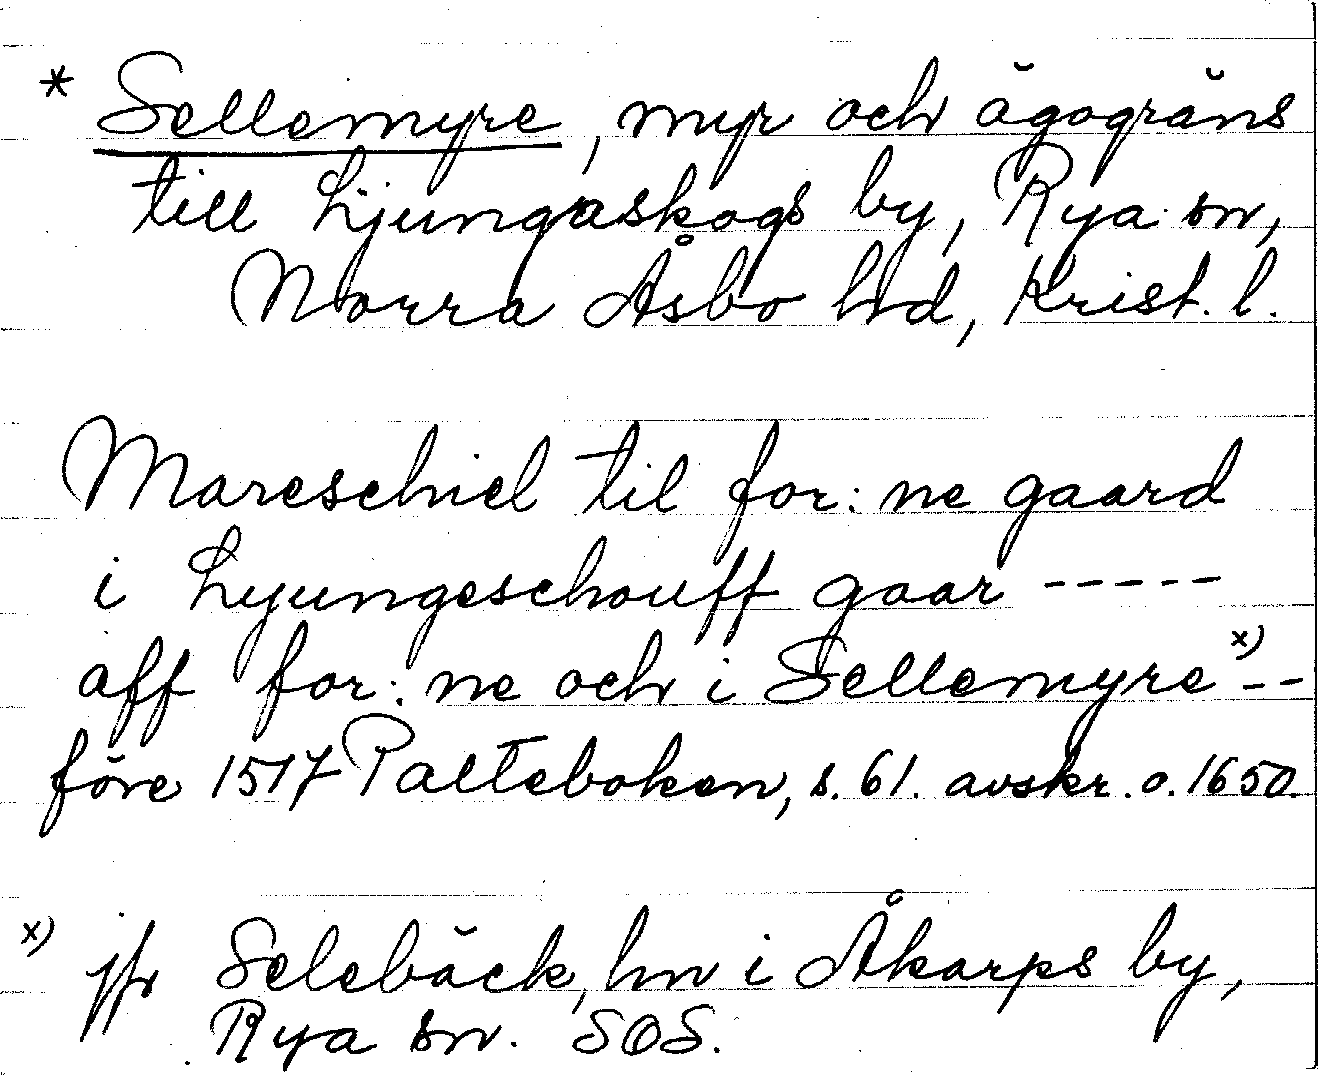 * Sellemyre, myr och ägogräns
till Ljungaskogs by, Rya sn,
Norra Åsbo hd, Krist. l.
Mareschiel til for: ne gaard
i Lyungeschouff gaar -----
aff for: ne och i Sellemyre x) --
före 1517 Palteboken, s. 61. avskr. o. 1650.
x) jfr Selebäck, hn i Åkarps by,
Rya sn. SOS.